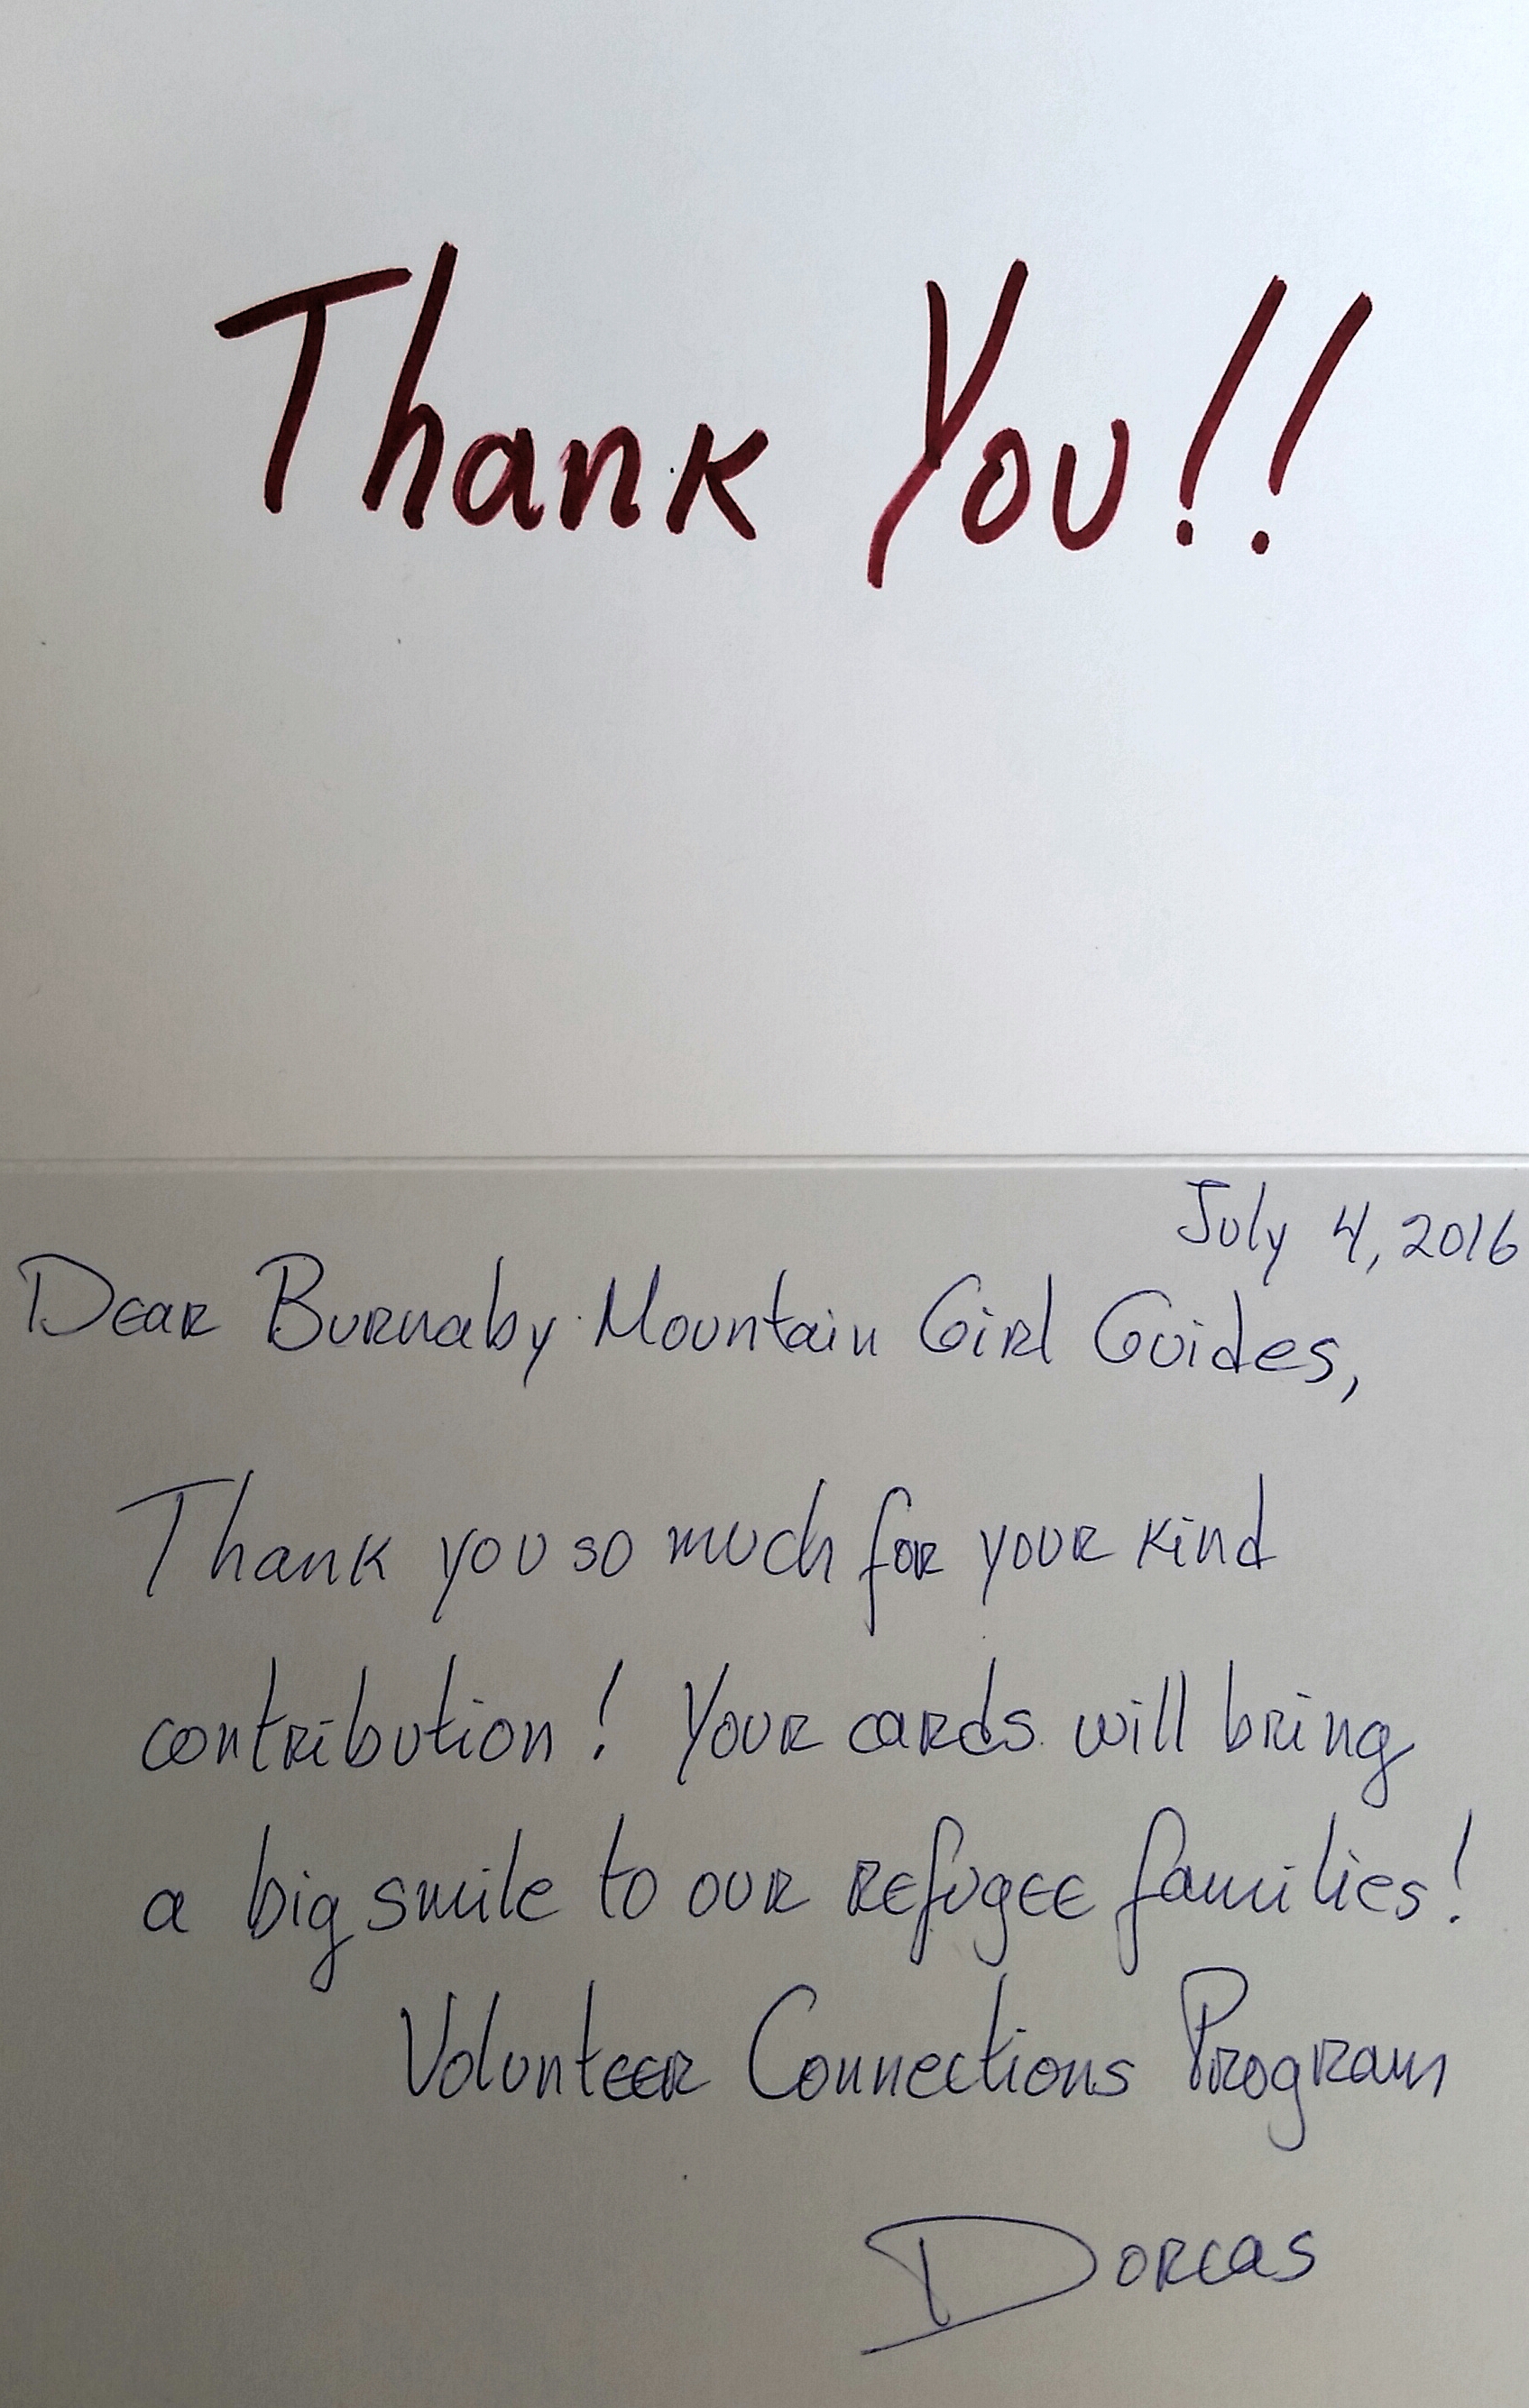 Thank You!!
July 4, 2016
Dear Burnaby Mountain Girl Guides,
Thank you so much for your kind
contribution! Your cards will bring
a big smile to our refugee families!
Volunteer Connections Program
Dorcas